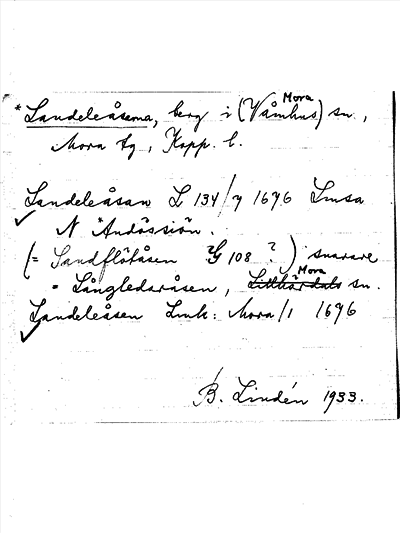 *Landeleåserna, berg i (Våmhus) Mora sn.,
Mora tg, Kopp. l.
Landeleåsan L 134/7 1696 Lmsa
N *Andössiön.
(= Sandflötåsen G 108 ?) snarare
= Långledaråsen, Lillhärdals Mora sn.
Landeleåsen Lmk: Mora/1 1696
B. Lindén 1933.